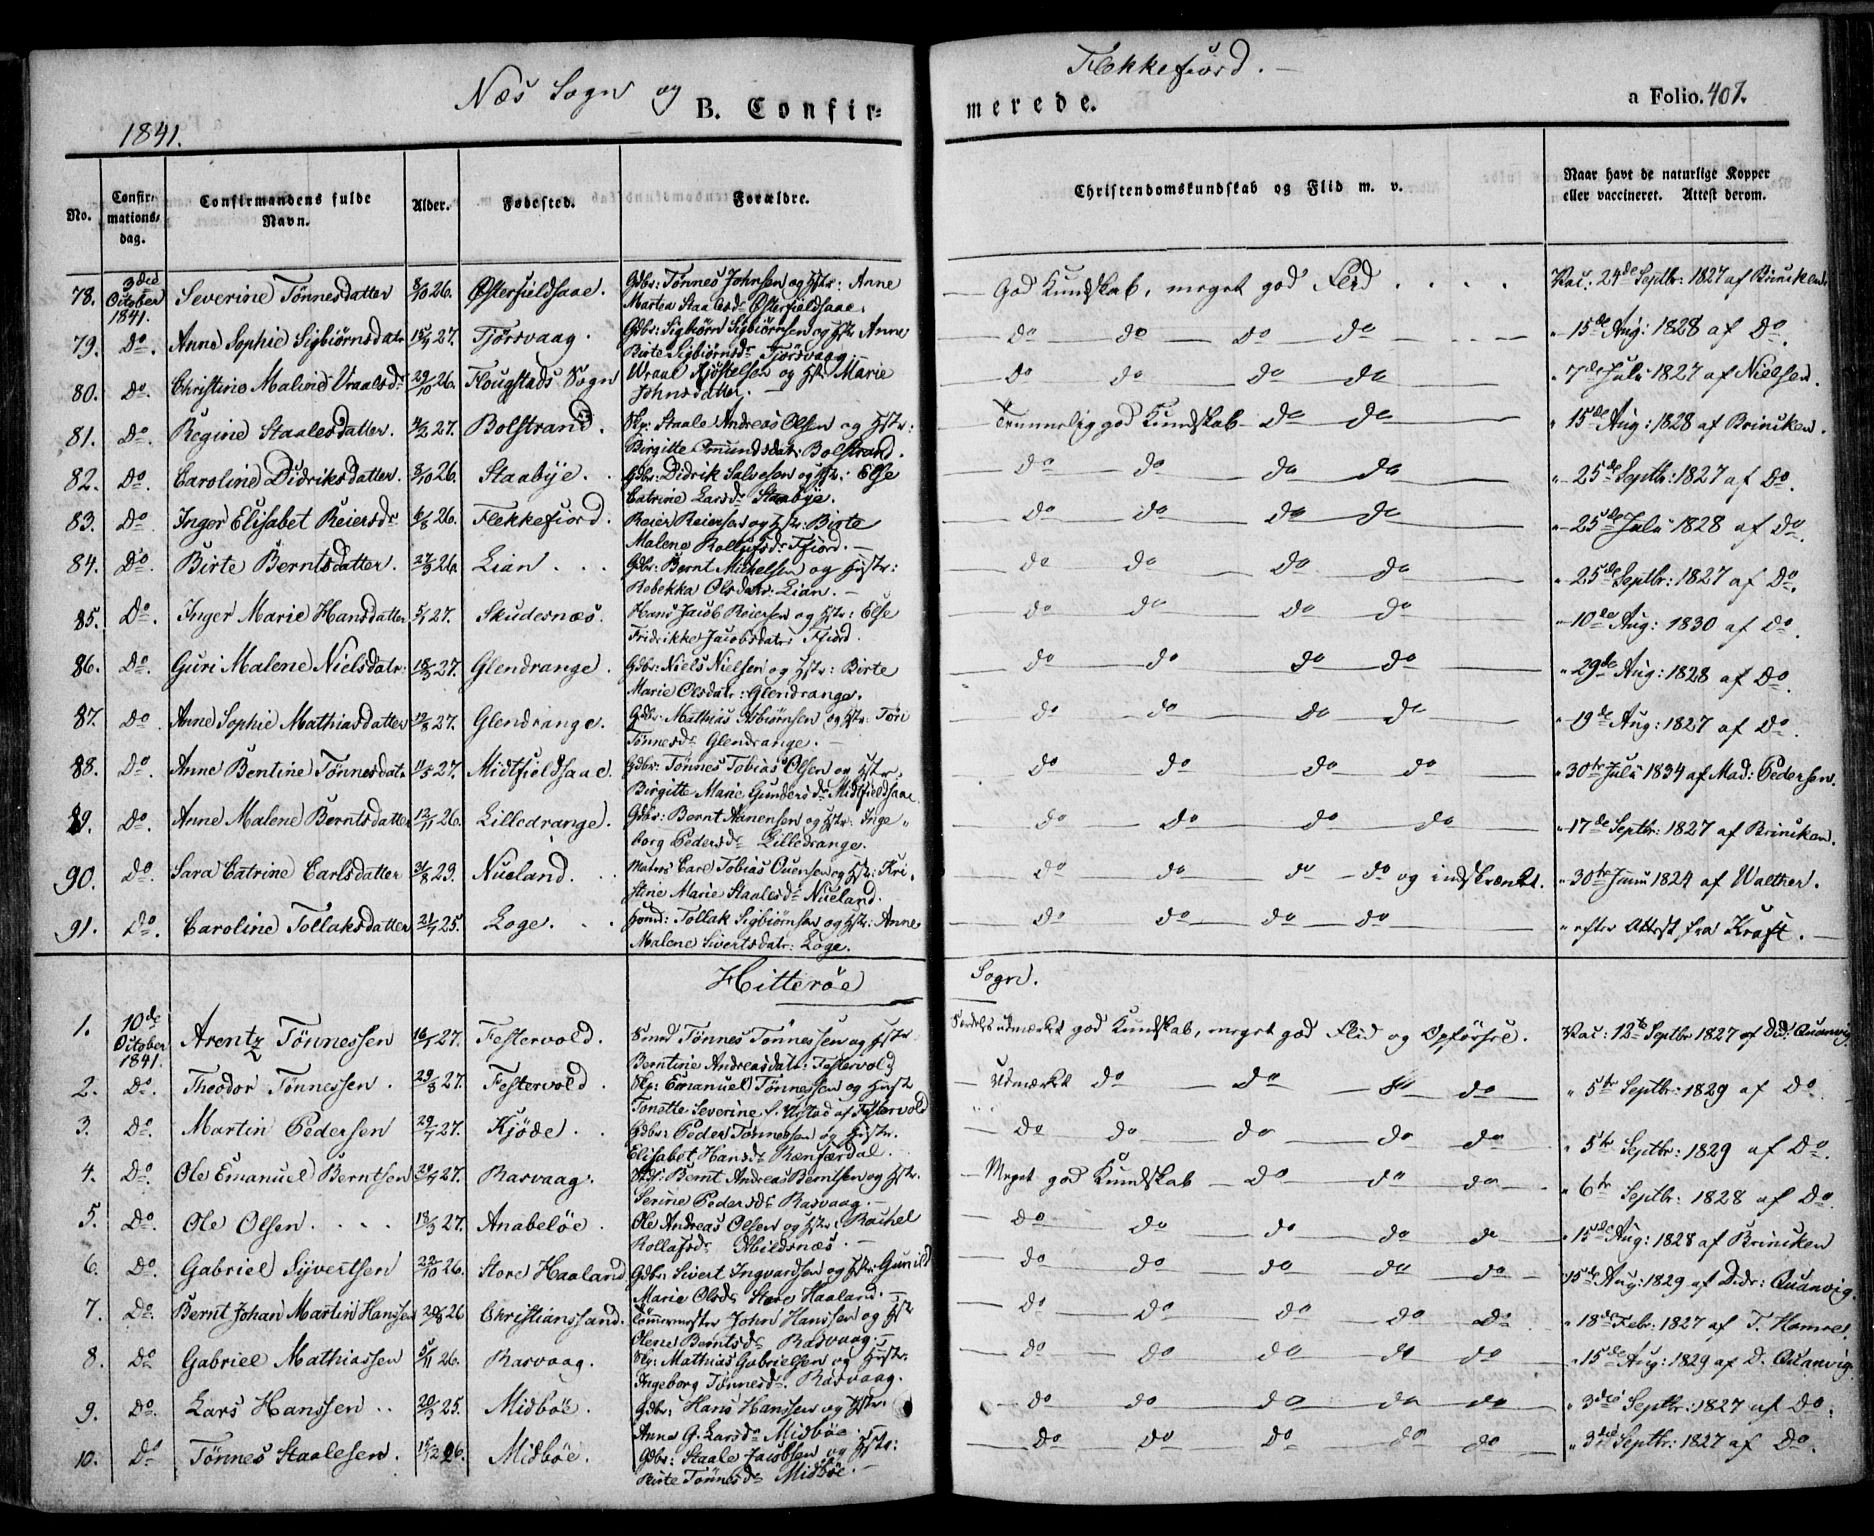 Næs Sogn og Flekkefiord.
B. Confirmerede.
a Folio. 407.
1841.
No. Confirmations-dag. Confirmandens fulde Navn. Alder. Fødested. Forældre. Christendomskundskab og Flid m. v. Naar havt de naturlige Kopper eller vaccineret. Attest derom.
78. 3die October 1841. Severine Tönnesdatter 8/10 26. Østerfieldsaae. Gdbr: Tönnes Johnsen og Hstr: Anne
Martea Staalesd: Østerfieldsaae. God Kundskab, meget god Flid . . . . Vac: 24de Septbr: 1827 af Briniken.
79. Do. Anne Sophie Sigbiörnsdatr 15/4 27. Tjörsvaag. Gdbr: Sigbiörn Sigbiörnsen og Hstr Anne
Birte Sigbiörnsdr Tjörsvaag. do do do do " 15de Aug: 1828 af Do.
80. Do. Christine Malene Vraalsdr 29/10 26. Flougstads Sogn Wraal Kjöstelsen og Hstr Marie
Johnsdatter. do do do do " 7de Juli 1827 af Nielsen.
81. Do. Regine Staalesdatter. 4/2 27. Bolstrand. Skp: Staale Andreas Olsen og Hstr:
Birgitte Omundsdatr: Bolstrand. Temmelig god Kundskab do do " 15de Aug: 1828 af Briniken.
82. Do. Caroline Didriksdatter. 8/10 26. Staabye. Gdbr: Didrik Salvesen og Hstr: Else
Catrine Larsdr Staabye. do do do do " 25de Septbr: 1827 af Do.
83. Do. Inger Elisabet Reiersdr 6/8 26. Flekkefiord. Reier Reiersen og Hstr: Birte
Malene Rollufsdr Ffiord. do do do do " 25de Juli 1828 af Do.
84. Do. Birte Berntsdatter. 27/3 26. Lian . . . Gdbr: Bernt Mickelsen og Hustr:
Rebekka Olsdatr: Lian. do do do do " 25de Septbr: 1827 af Do.
85. Do. Inger Marie Hansdatter 5/1 27. Skudesnæs. Hans Jacob Reiersen og Hstr: Else
Fridrikke Jacobsdatr: Ffiord. do do do do " 10de Aug: 1830 af Do.
86. Do. Guri Malene Nielsdatr 18/3 27. Glendrange. Gdbr: Niels Nielsen og Hstr: Birte
Marie Olsdatr: Glendrange. do do do do " 29de Aug: 1828 af Do.
87. Do. Anne Sophie Mathiasdatter 12/8 27. Glendrange. Gdbr: Mathias Asbiörnsen og Hstr: Töri
Tönnesdr Glendrange. do do do do " 19de Aug: 1827 af Do.
88. Do. Anne Bentine Tönnesdatr 11/5 27. Midtfieldsaae. Gdbr: Tönnes Tobias Olsen og Hstr.
Birgitte Marie Gundersdr Midtfieldsaae. do do do do " 30te Juli 1834 af Mad: Pedersen.
89. Do. Anne Malene Berntsdatter 12/11 26. Lilledrange. Gdbr: Bernt Aanensen og Hstr: Inge-
borg Pedersdr Lilledrange. do do do do " 17de Septbr: 1827 af Briniken.
90. Do. Sara Catrine Carlsdatter 31/8 29. Nueland. Matros Carl Tobias Ouensen og Hstr: Kri-
stine Marie Staalesdr Nueland. do do do do og indskrænkt. " 30te Juni 1824 af Walther.
91. Do. Caroline Tollaksdatter 21/7 25. Loge. Huusmd: Tollak Sigbiörnsen og Hstr: Anne
Malene Sivertsdatr: Loge. do do do do " efter Attest fra Kraft.
Hitteröe Sogn.
1. 10de October 1841. Arentz Tönnessen 16/1 27. Festervold. Smed Tönnes Tönnessen og Hstr
Berntine Andreasdatr: Festervold Særdeles udmærket god Kundskab, meget god Flid og Opförsel. Vac: 12te Septbr 1827 af Did: Quanvig
2. Do. Theodor Tönnessen. 29/3 27. Festervold. Skp: Emanuel Tönnessen og Hust
Tonette Severine f. Ustad af Festervold Udmærket do do do do " 5te Septbr: 1829 af Do
3. Do. Martin Pedersen 29/7 27. Kjöde. Gdbr: Peder Tönnessen og Hustr.
Elisabet Hansdr Rænfærdal. do do do do do " 5te Septbr: 1829 af Do.
4. Do. Ole Emanuel Berntsen 20/7 27. Rasvaag. Bernt Andreas Berntsen og Hstr.
Serine Pedersdr Rasvaag. Meget god Kundskab do do do " 6te Septbr: 1828 af Do.
5. Do. Ole Olsen . . . . 18/3 27. Anabelöe. Ole Andreas Olsen og Hstr: Rachel
Rollafsdr Abildsnæs. do do do do do " 15de Aug: 1828 af Briniken
6. Do. Gabriel Syvertsen 22/10 26. Store Haaland Gdbr: Sivert Ingvardsen og Hstr: Gunild
Marie Olsdr Store Haaland. do do do do do 15de Aug: 1829 af Didr: Quanvig.
7. Do. Bernt Johan Martin Hanssen 20/8 26 Christianssand. Tömmermester John Hanssen og Hst
Olene Berntsdr Rasvaag. do do do do do " 18de Febr: 1827 af T. Hamre.
8. Do. Gabriel Mathiassen 5/11 26. Rasvaag. Skp: Mathias Gabrielsen og Hustr.
Ingeborg Tönnesdr. Rasvaag. do do do do do " 15de Aug: 1829 af D. Quanvig
9. Do. Lars Hanssen .. 20/3 25. Midböe. Gdbr: Hans Hanssen og Hstr:
Anne G. Larsdr Midböe do do do do do " 3die Septbr: 1827 af Do.
10. Do Tönnes Staalesen. 15/3 26. Midböe. Gdbr: Staale Jacobsen og Hstr:
Birte Tönnesdr Midböe. do do do do do " 3die Septbr: 1827 af Do.